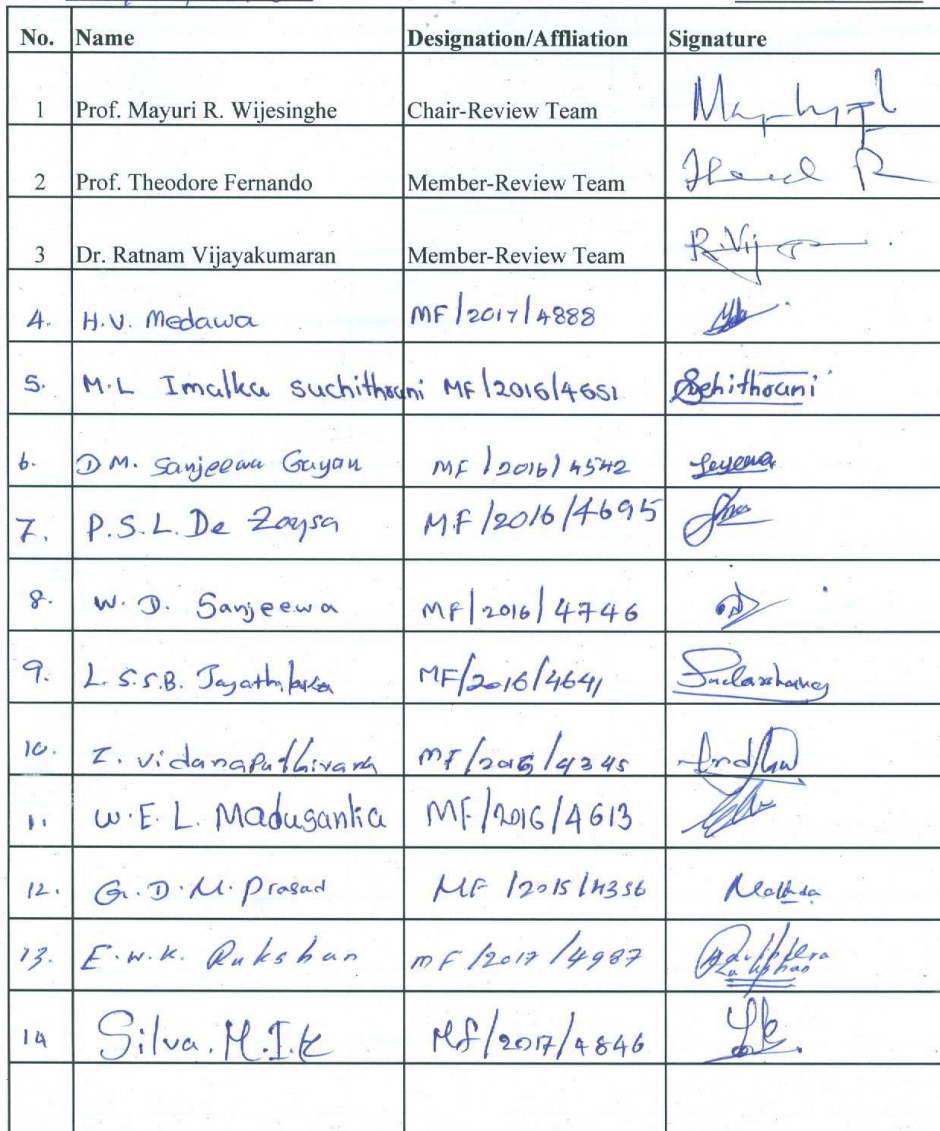 No. Name Designation/Affliation Signature
1 Prof. Mayuri R. Wijesinghe Chair-Review Team
2 Prof. Theodore Fernando Member-Review Team
3 Dr. Ratnam Vijayakumaran Member-Review Team R.Vij
4. H.V. Medawa MF/2017/4888
5. M.L Imalka Suchithrani MF/2016/4651 Suchithrani
6. D M. Sanjeewa Gayan MF/2016/4542
7. P.S.L. De Zoysa MF/2016/4695
8. W. D. Sanjeewa MF/2016/4746
9. L.S.S.B. Jayathilaka MF/2016/4641
10. I. Vidanapathirana MF/2016/4345
11 W.E.L. Madusanka MF/2016/4613
12. G.D.M. Prasad MF/2015/4356
13. E.W.K. Rukshan MF/2017/4987
14 Silva.M.I.K MF/2017/4846